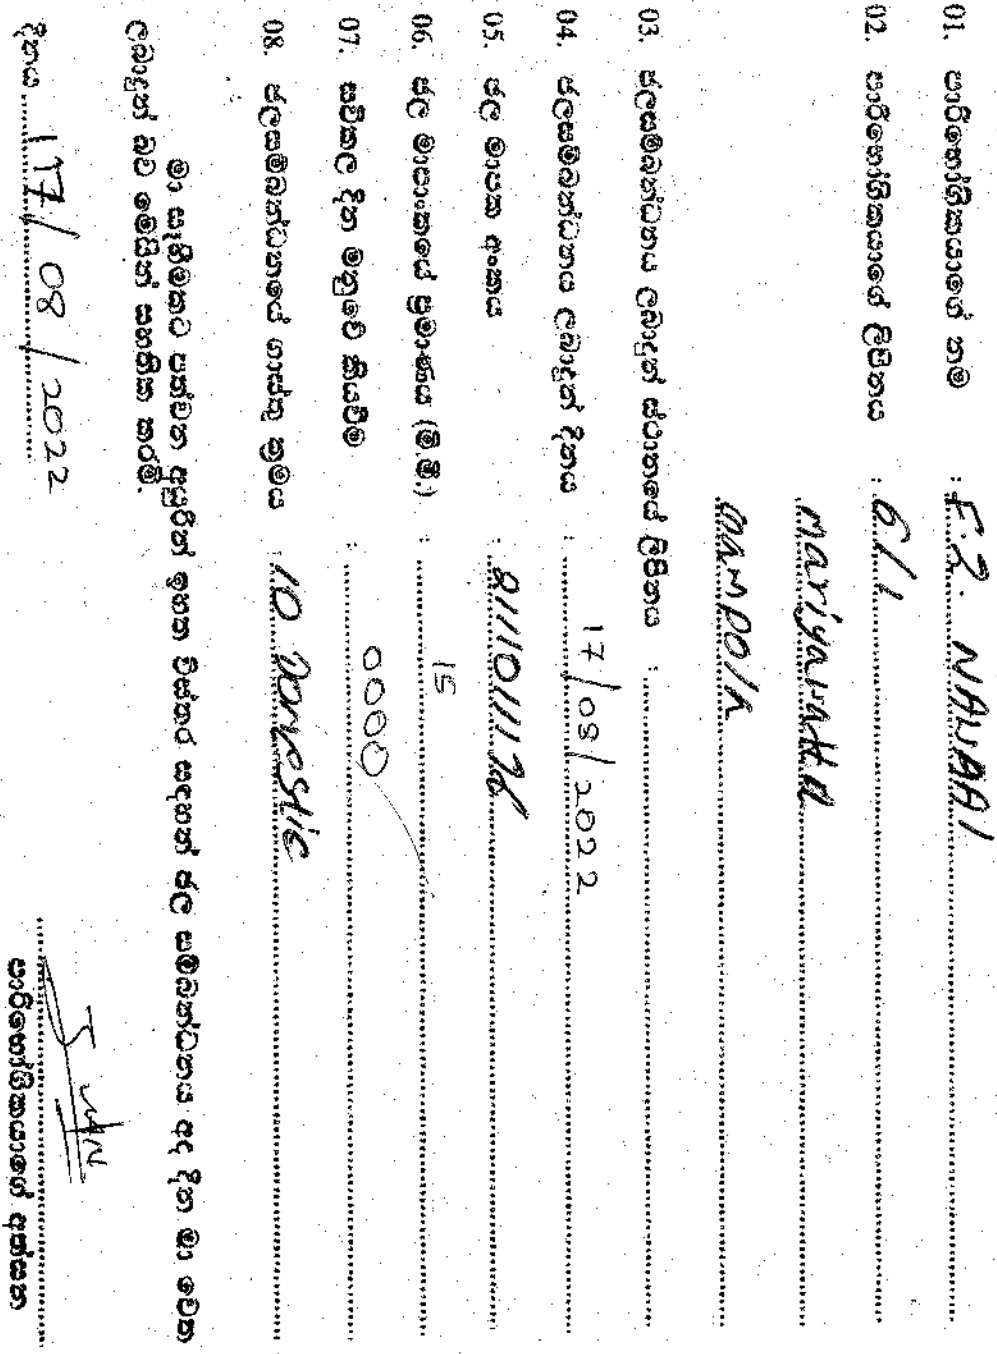 01. පාරිභෝගිකයාගේ නම : F.Z. NAWAAI
02. පාරිභෝගිකයාගේ ලිපිනය : 6/1
Mariyawatta
Gampola
03. ජලසම්බන්ධනය ලබාදුන් ස්ථානයේ ලිපිනය :
04. ජලසම්බන්ධනය ලබාදුන් දිනය : 17/08/2022
05. ජල මාපක අංකය :
06. ජල මාපාංකයේ ප්‍රමාණය (මි.මී.) : 15
07. සවිකල දින මනුවේ කියවීම : 0000
08. ජලසම්බන්ධනයේ ගාස්තු ක්‍රමය : 10 Domestic
මා සෑහීමකට පත්වන අයුරින් ඉහත විස්තර සඳහන් ජල සම්බන්ධනය අද දින මා වෙත
ලබාදුන් බව මෙයින් සහතික කරමි.
දිනය 17/08/2022
පාරිභෝගිකයාගේ අත්සන